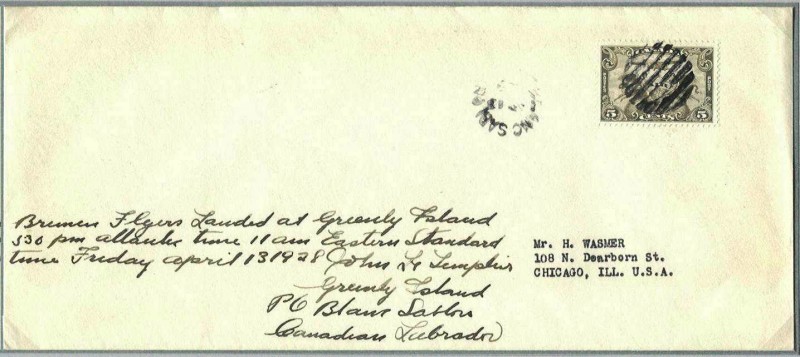 5 5
CENTS
BLANC SABLON
Bremen Flyers Landed at Greenly Island
530 pm atlantic time 11 am Eastern Standard
time Friday april 13 1928 John Le Templier
Greenly Island
PO Blanc Sablon
Canadian Labrador
Mr. H. WASMER
108 N. Dearborn St.
CHICAGO, ILL. U.S.A.